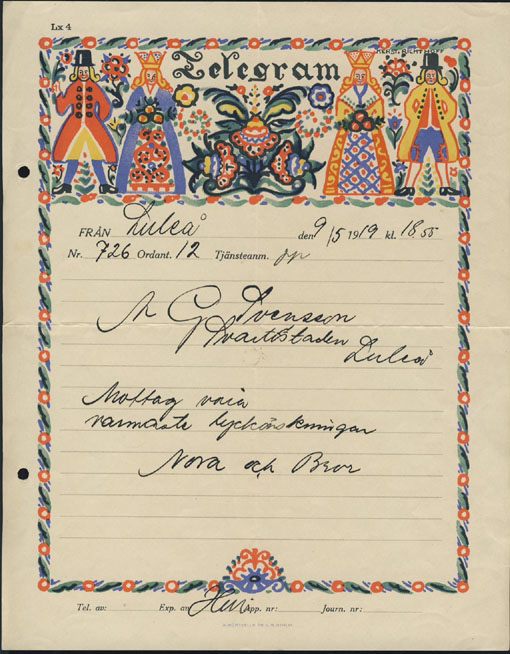 Lx 4
Telegram
FRÅN Luleå den 9/5 1919 kl. 18 55
Nr. 726 Ordant. 12 Tjänsteanm.
G Svensson
Svartöstaden
Luleå
Mottag våra
varmaste lyckönskningar
Nora och Bror
Tel. av: Exp. av App. nr: Journ. nr: